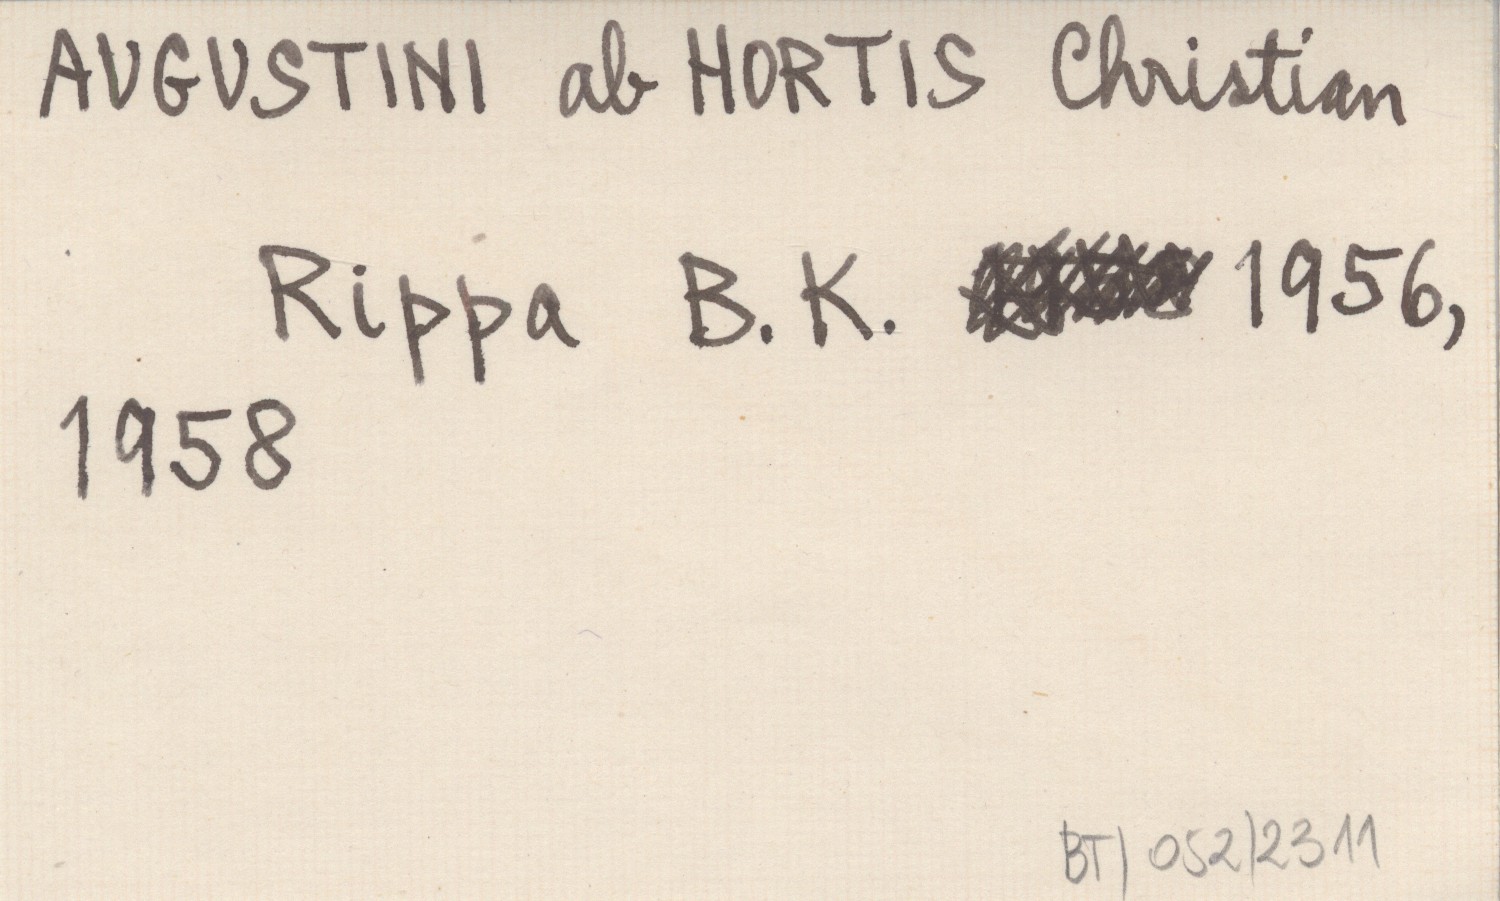 AUGUSTINI ab HORTIS Christian
Rippa B.K. 1956,
1958
BT/052/2311